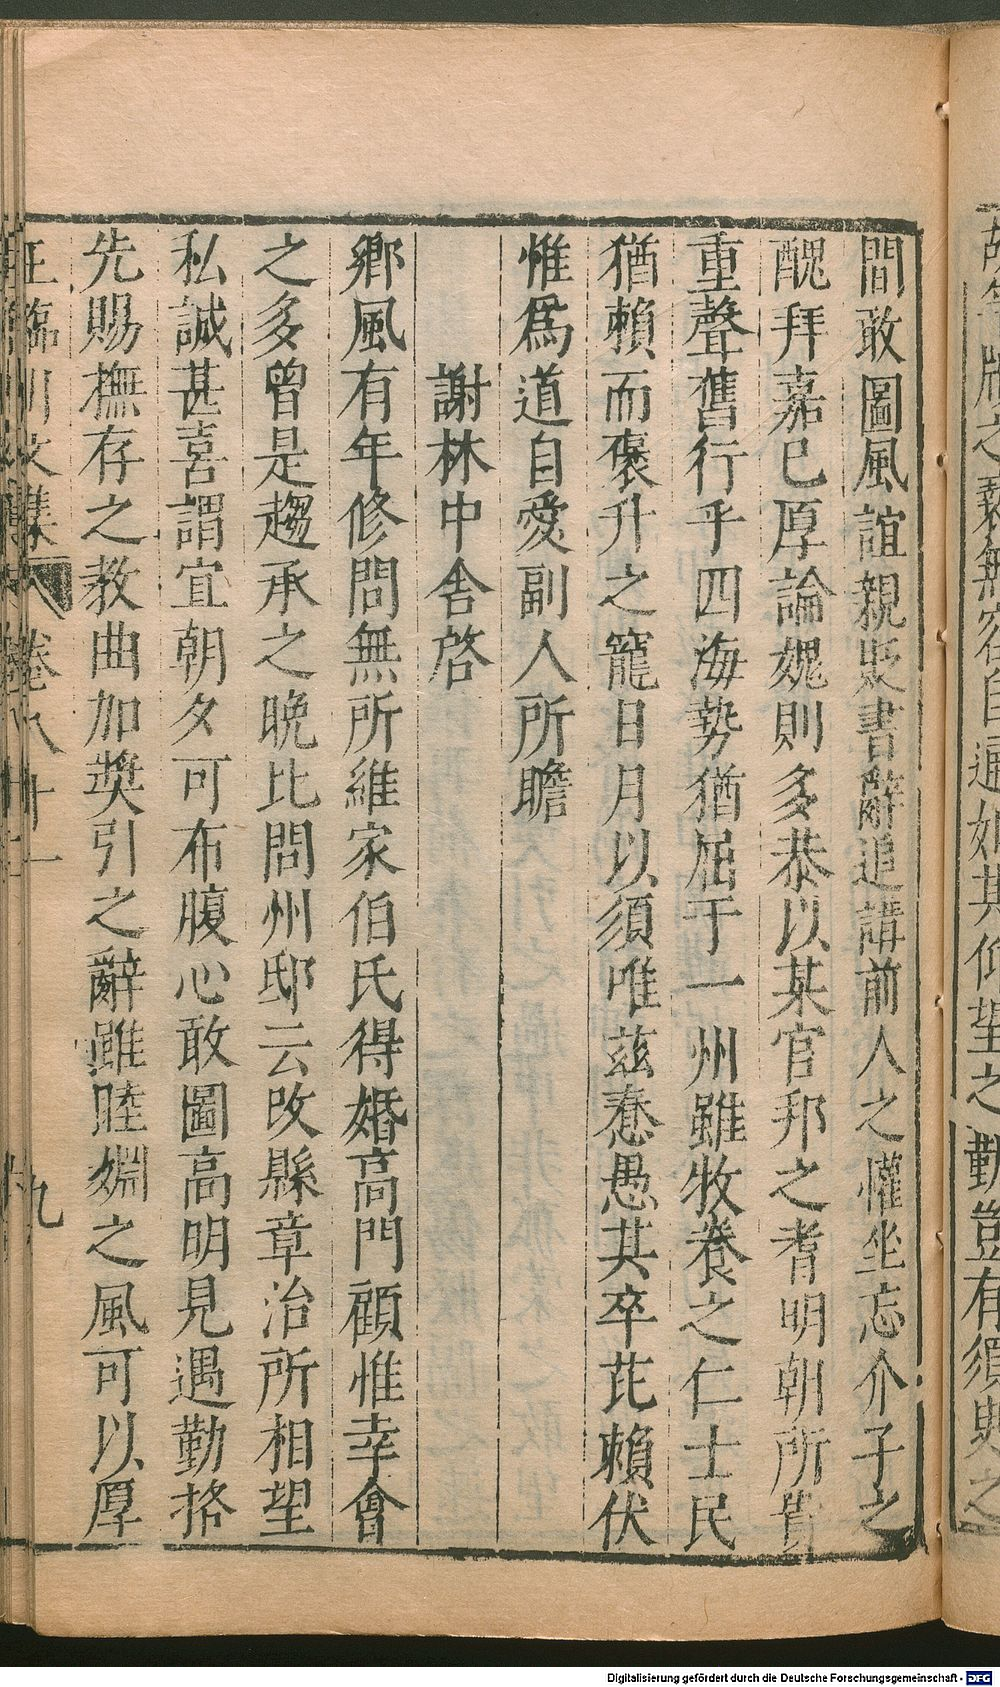 間敢圖風誼親貶書辭追講前人之懽坐忘介子之
醜拜嘉已厚論媿則多恭以某官邦之耆明朝所貴
重聲舊行乎四海勢猶屈于一州雖牧養之仁士民
猶賴而褒升之寵日月以須唯茲惷愚其卒芘賴伏
惟爲道自愛副人所瞻
謝林中舍啓
鄉風有年修問無所維家伯氏得婚高門顧惟幸會
之多曾是趨承之晩比問州邸云改縣章治所相望
私誠甚喜謂宜朝夕可布腹心敢圖高明見遇勤挌
先賜撫存之教曲加奬引之辭雖睦婣之風可以厚
王臨川文集 卷八十一 九
Digitalisierung gefördert durch die Deutsche Forschungsgemeinschaft - DFG